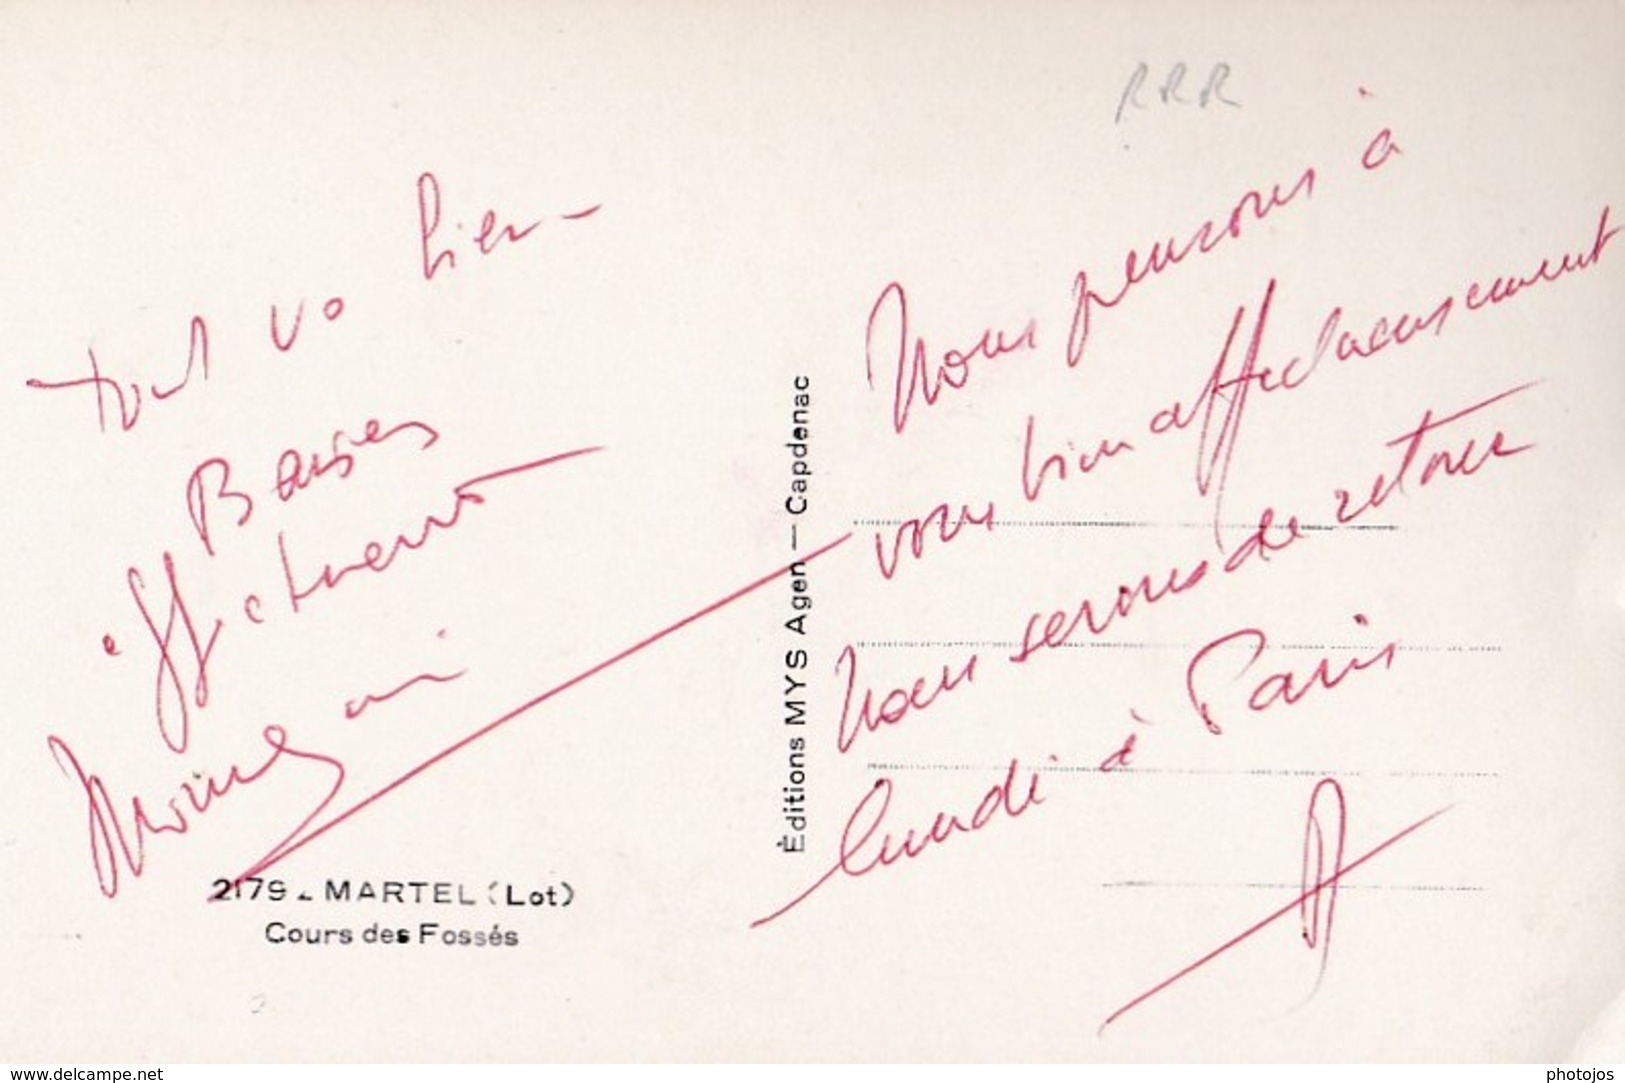 Tout va bien -
Baises
affectueux
2179 - MARTEL (Lot)
Cours des Fossés
Éditions MYS Agen — Capdenac
RRR
Nous pensons à
vous bien affectueusement
Nous serons de retour
lundi à Paris
www.delcampe.net
photojos